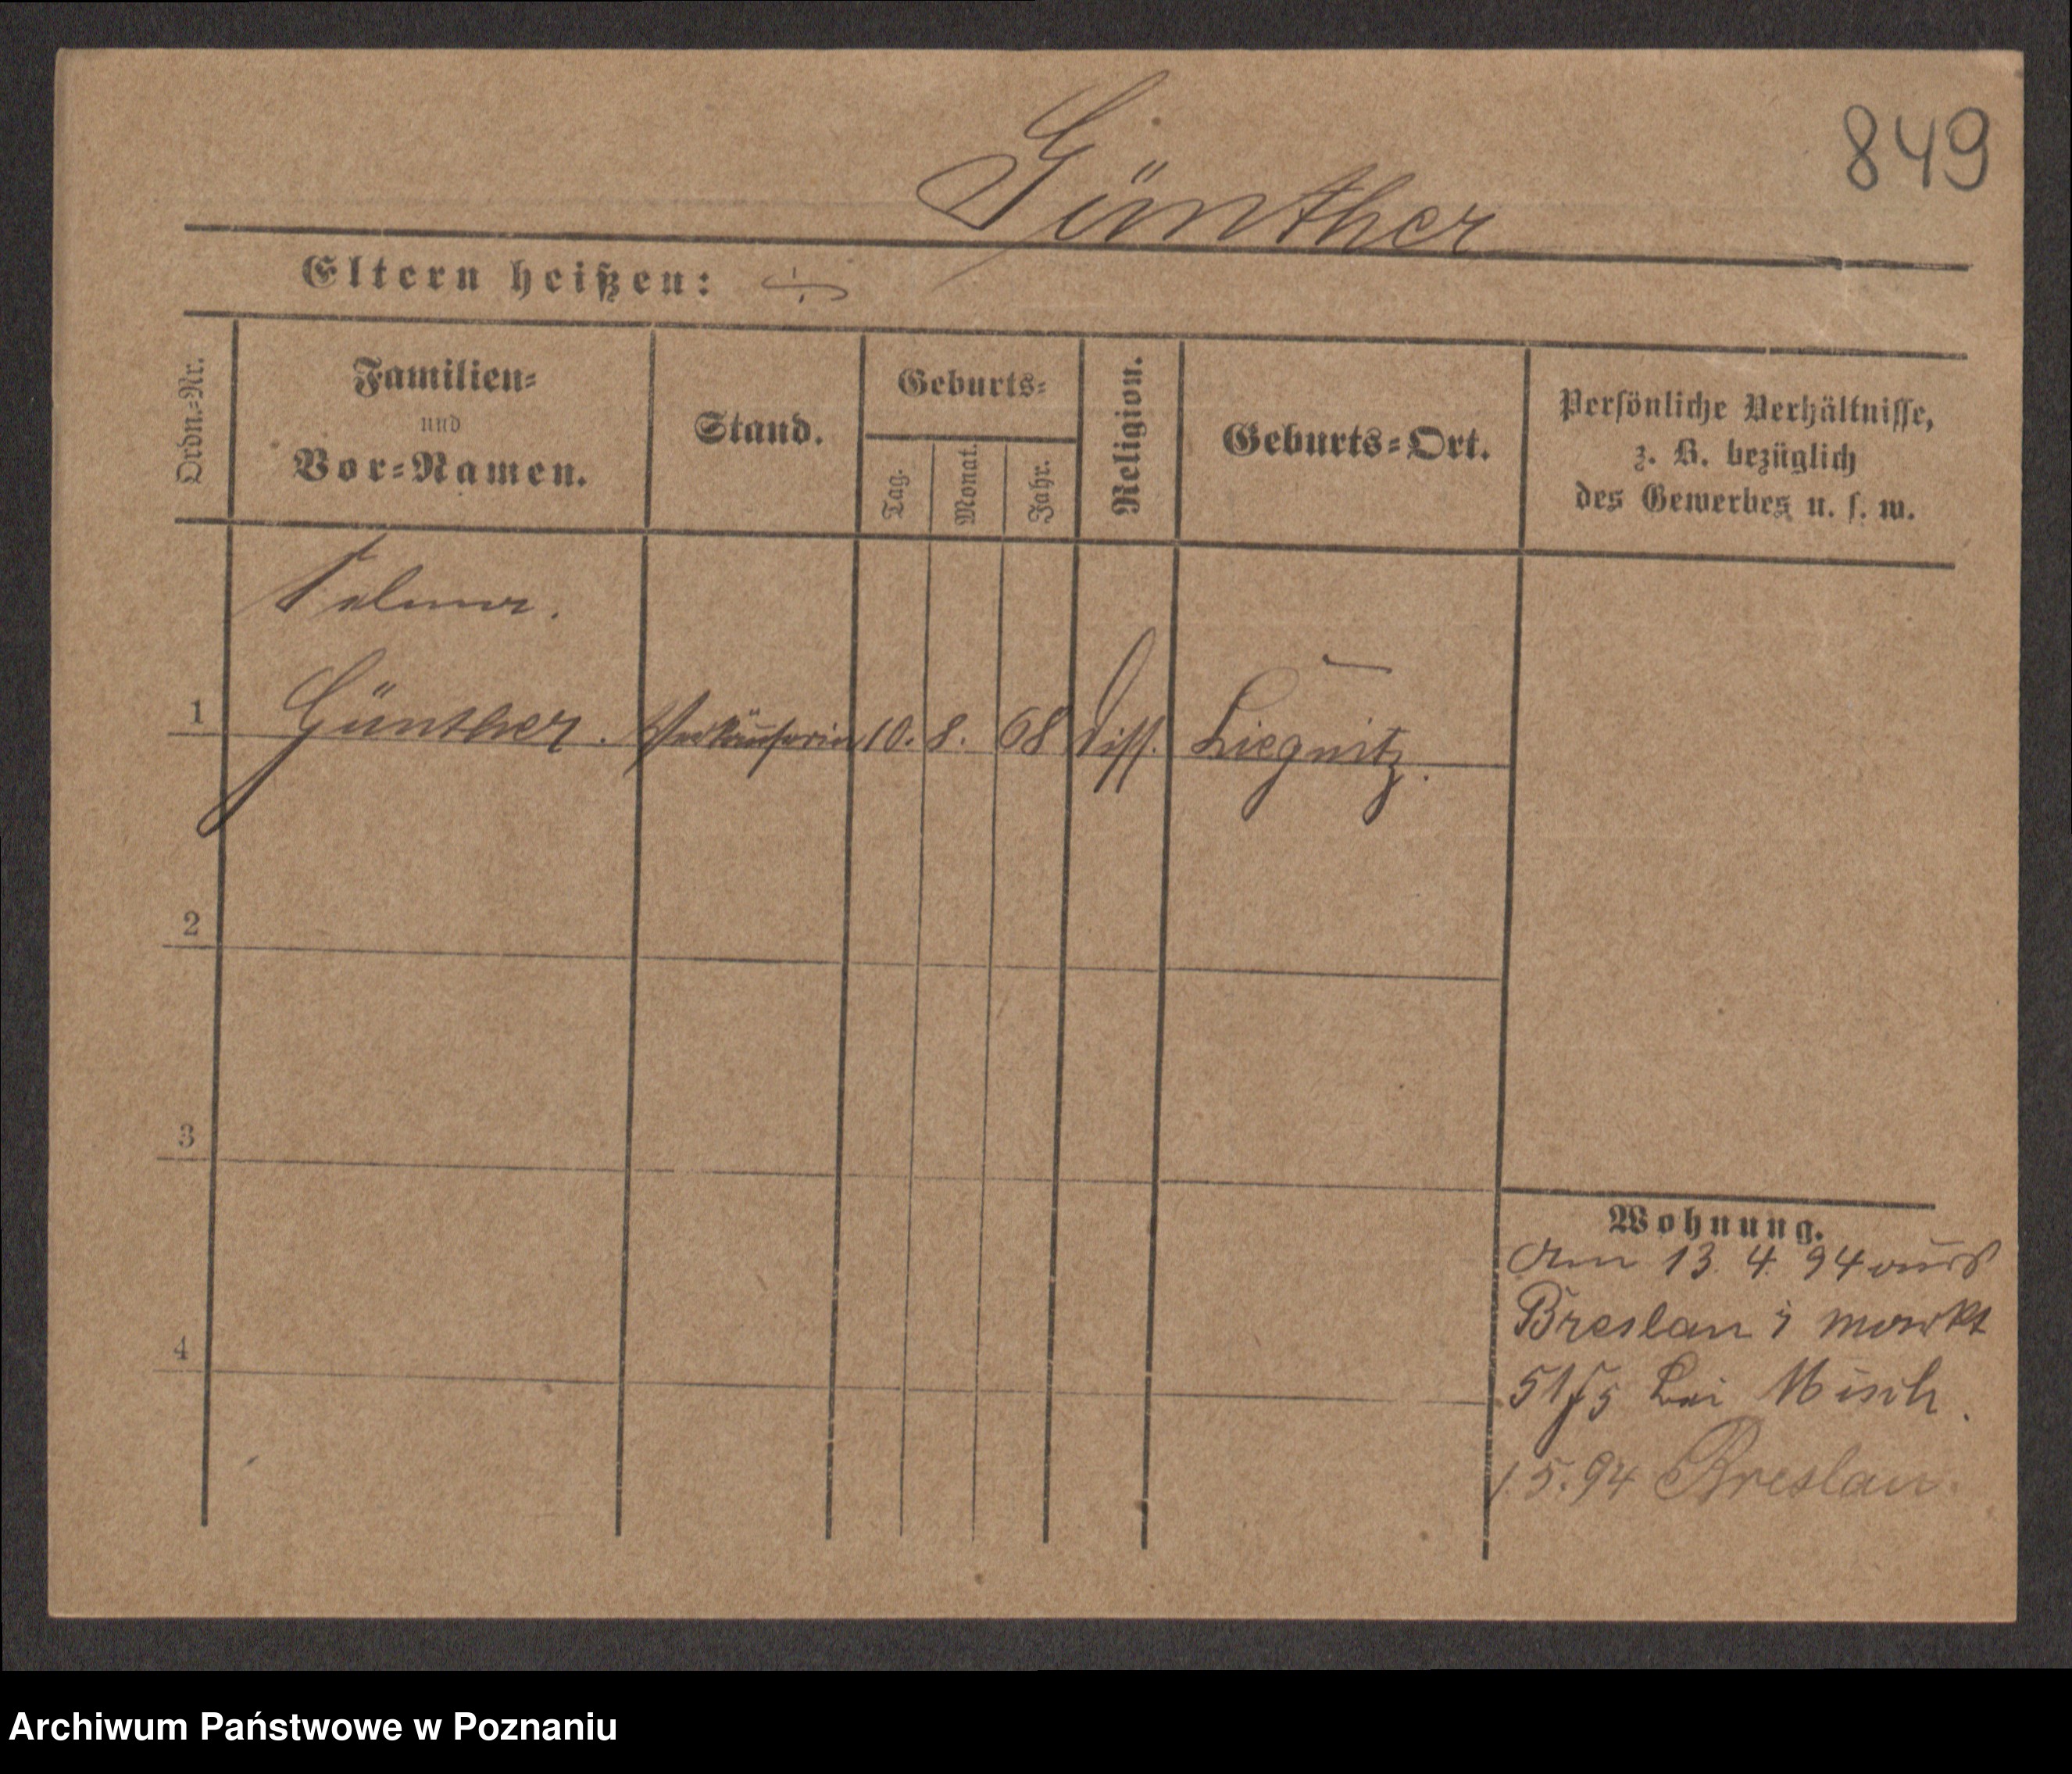 849
Günther
Eltern heißen: ÷
Ordn.-Nr.
Familien-
und
Vor-Namen.
Stand.
Geburts-
Tag.
Monat.
Jahr.
Religion.
Geburts-Ort.
Persönliche Verhältnisse,
z. B. bezüglich
des Gewerbes u. s. w.
1
Günther. Verkäuferin 10. 8. 68 diss. Liegnitz.
2
3
4
Wohnung.
Am 13. 4. 94 aus
Breslau; Markt
51/5 bei Misch.
15.94 Breslau.
Archiwum Państwowe w Poznaniu